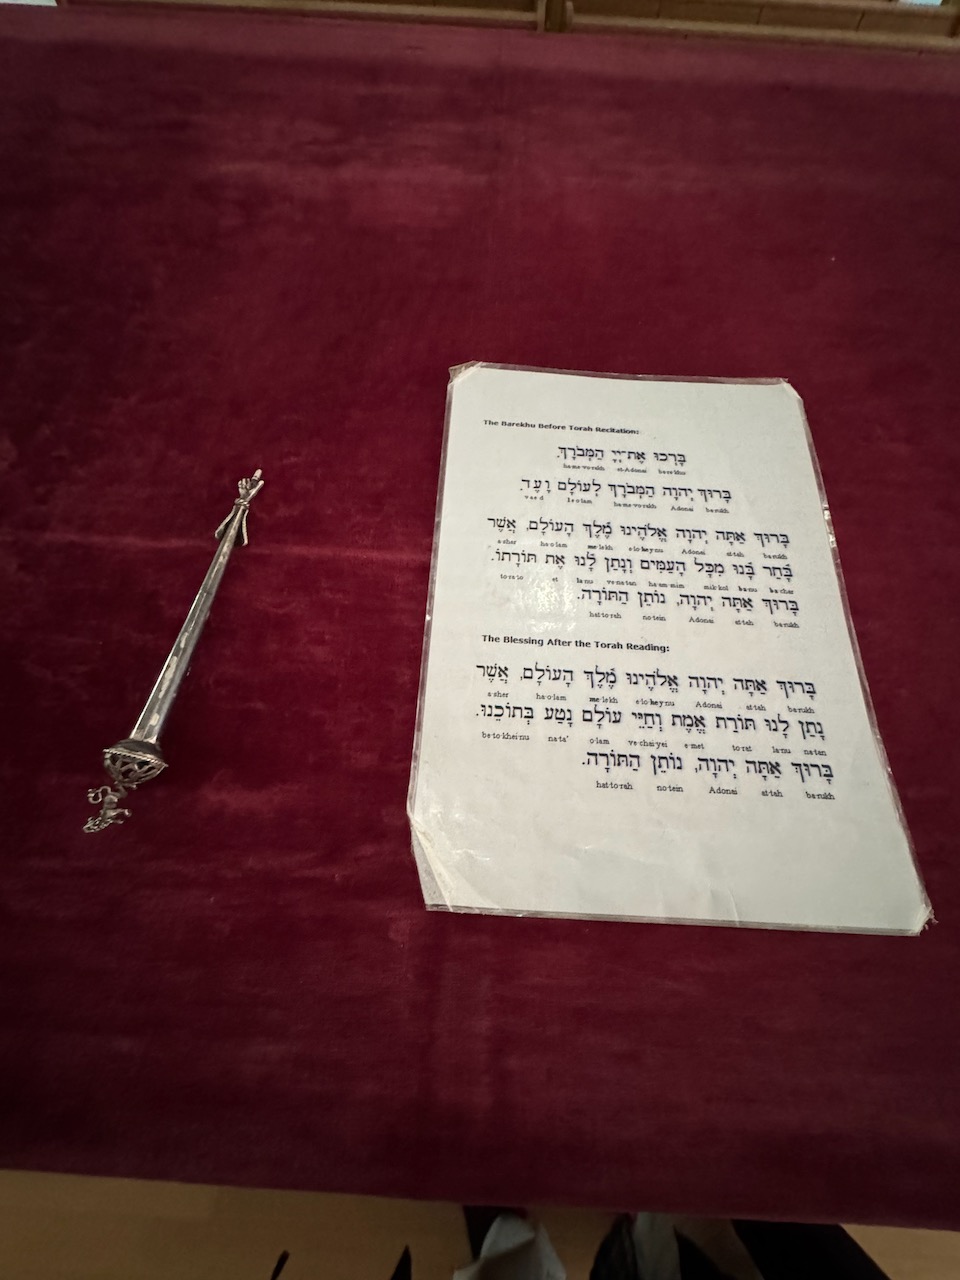 The Barekhu Before Torah Recitation:
בָּרְכוּ אֶת־יְיָ הַמְּבֹרָךְ.
ha·me·vo·rakh et-Adonai ba·re·khu
בָּרוּךְ יְהוָה הַמְּבֹרָךְ לְעוֹלָם וָעֶד.
va·ed le·o·lam ha·me·vo·rakh Adonai ba·rukh
בָּרוּךְ אַתָּה יְהוָה אֱלֹהֵינוּ מֶלֶךְ הָעוֹלָם, אֲשֶׁר
a·sher ha·o·lam me·lekh e·lo·hey·nu Adonai at·tah ba·rukh
בָּחַר בָּנוּ מִכָּל הָעַמִּים וְנָתַן לָנוּ אֶת תּוֹרָתוֹ.
to·ra·to et la·nu ve·na·tan ha·am·mim mik·kol ba·nu ba·char
בָּרוּךְ אַתָּה יְהוָה, נוֹתֵן הַתּוֹרָה.
hat·to·rah no·tein Adonai at·tah ba·rukh
The Blessing After the Torah Reading:
בָּרוּךְ אַתָּה יְהוָה אֱלֹהֵינוּ מֶלֶךְ הָעוֹלָם, אֲשֶׁר
a·sher ha·o·lam me·lekh e·lo·hey·nu Adonai at·tah ba·rukh
נָתַן לָנוּ תּוֹרַת אֱמֶת וְחַיֵּי עוֹלָם נָטַע בְּתוֹכֵנוּ.
be·to·khei·nu na·ta' o·lam ve·chai·yei e·met to·rat la·nu na·tan
בָּרוּךְ אַתָּה יְהוָה, נוֹתֵן הַתּוֹרָה.
hat·to·rah no·tein Adonai at·tah ba·rukh